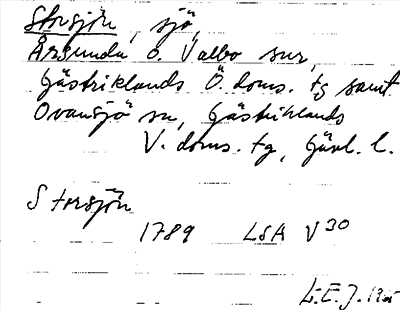 Storsjön, sjö,
Årsunda o. Valbo snr,
Gästriklands Ö. doms. tg samt
Ovansjö sn, Gästriklands
V. doms. tg, Gävl. l.
Storsjön
1789 LSA V 30
L.E.J.